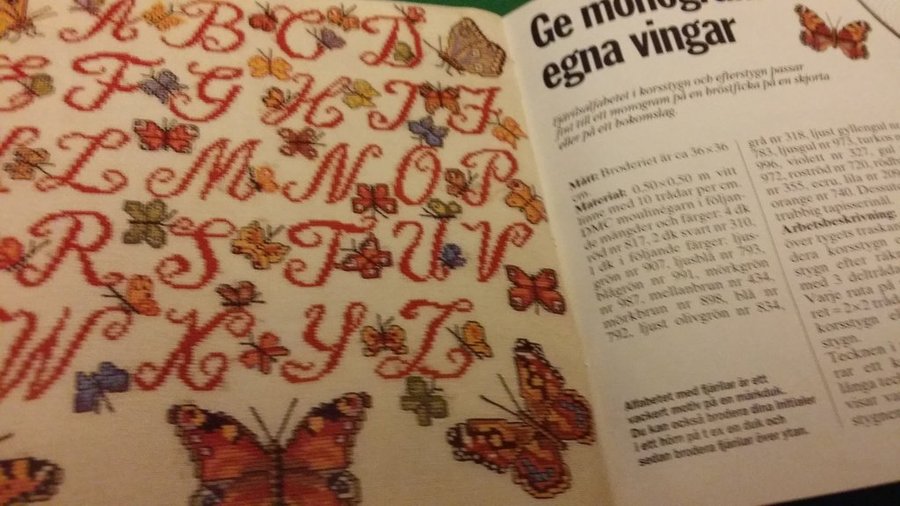 A B C D
F G H I J
L M N O P
R S T U V
W X Y Z
Ge monogram
egna vingar
Fjärilsalfabetet i korsstygn och efterstygn passar
fint till ett monogram på en bröstficka på en skjorta
eller på ett bokomslag.
Mått: Broderiet är ca 36×36
cm.
Material: 0,50×0,50 m vitt
linne med 10 trådar per cm.
DMC moulinégarn i följan-
de mängder och färger: 4 dk
röd nr 817, 2 dk svart nr 310,
1 dk i följande färger: ljus-
grön nr 907, ljusblå nr 793,
blågrön nr 991, mörkgrön
nr 987, mellanbrun nr 434,
mörkbrun nr 898, blå nr
792, ljust olivgrön nr 834,
grå nr 318, ljust gyllengul nr
783, ljusgul nr 973, turkos nr
996, violett nr 327, gul
972, roströd nr 720, rödbr
nr 355, ecru, lila nr 209
orange nr 740. Dessut
trubbig tapisserinål.
Arbetsbeskrivning:
över tygets traskan
dera korsstygn o
stygn efter räkn
med 3 deltråda
Varje ruta på
ret = 2×2 tråd
korsstygn el
stygn.
Tecknen i
rar ett k
långa tec
visar va
stygnen
Alfabetet med fjärilar är ett
vackert motiv på en märkduk.
Du kan också brodera dina initialer
i ett hörn på t ex en duk och
sedan brodera fjärilar över ytan.